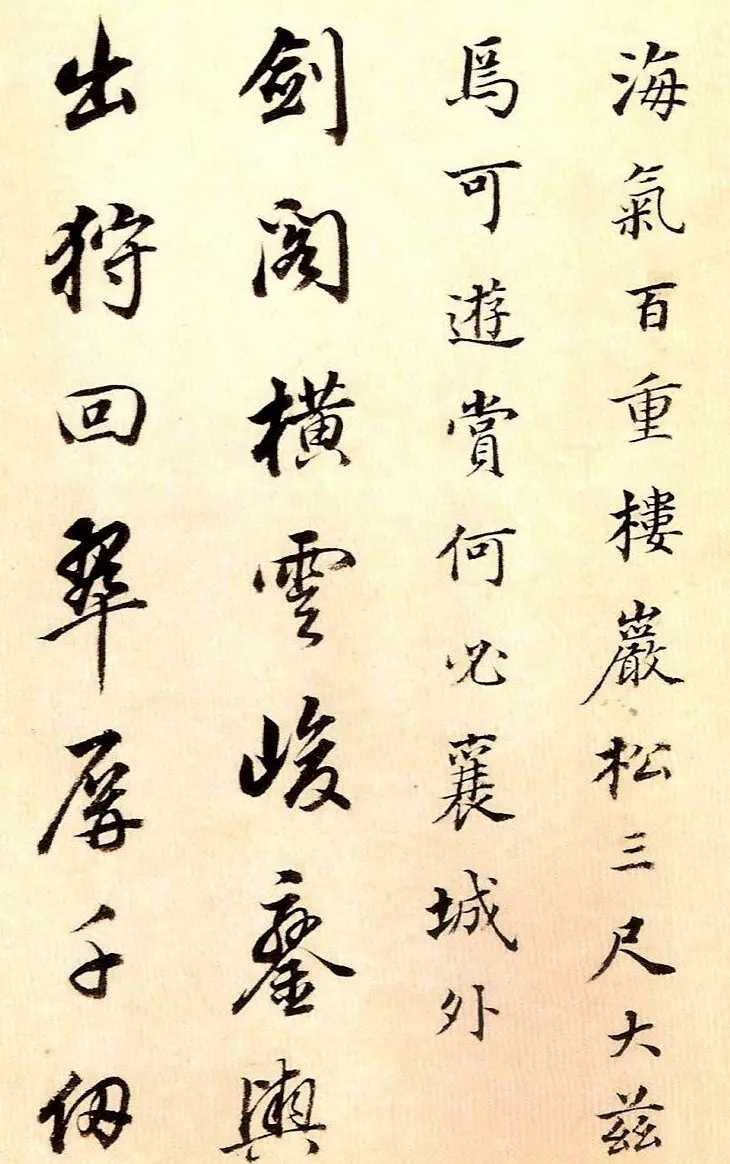 海氣百重樓巖松三尺大茲
焉可遊賞何必襄城外
劍閣橫雲峻鑾輿
出狩回翠屏千仞